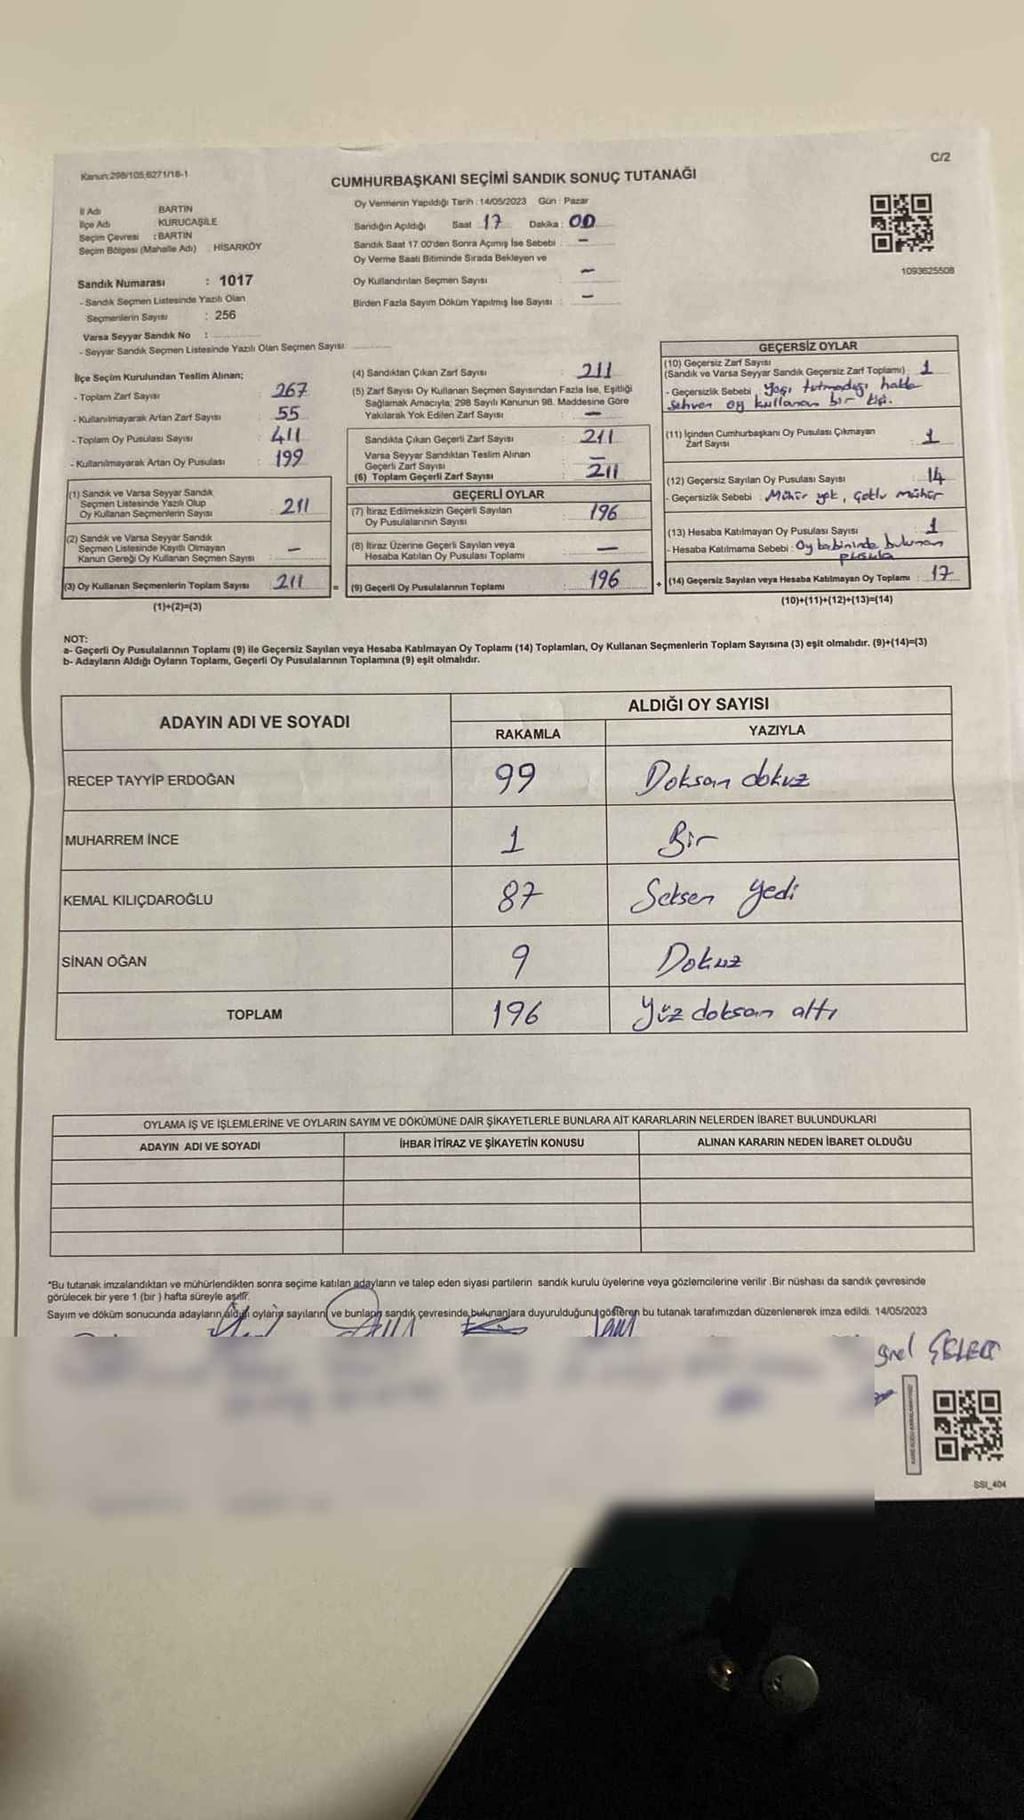 C/2
Kanun:298/105,6271/18-1
CUMHURBAŞKANI SEÇİMİ SANDIK SONUÇ TUTANAĞI
İl Adı BARTIN
İlçe Adı KURUCAŞİLE
Seçim Çevresi : BARTIN
Seçim Bölgesi (Mahalle Adı) : HİSARKÖY
Sandık Numarası : 1017
- Sandık Seçmen Listesinde Yazılı Olan
Seçmenlerin Sayısı : 256
Varsa Seyyar Sandık No :
- Seyyar Sandık Seçmen Listesinde Yazılı Olan Seçmen Sayısı
Oy Vermenin Yapıldığı Tarih : 14/05/2023 Gün : Pazar
Sandığın Açıldığı Saat : 17 Dakika : 00
Sandık Saat 17.00'den Sonra Açımış İse Sebebi : -
Oy Verme Saati Bitiminde Sırada Bekleyen ve
Oy Kullandırılan Seçmen Sayısı -
Birden Fazla Sayım Döküm Yapılmış İse Sayısı : -
1093625508
İlçe Seçim Kurulundan Teslim Alınan;
- Toplam Zarf Sayısı : 267
- Kullanılmayarak Artan Zarf Sayısı : 55
- Toplam Oy Pusulası Sayısı : 411
- Kullanılmayarak Artan Oy Pusulası : 199
(1) Sandık ve Varsa Seyyar Sandık
Seçmen Listesinde Yazılı Olup
Oy Kullanan Seçmenlerin Sayısı : 211
(2) Sandık ve Varsa Seyyar Sandık
Seçmen Listesinde Kayıtlı Olmayan
Kanun Gereği Oy Kullanan Seçmen Sayısı : -
(3) Oy Kullanan Seçmenlerin Toplam Sayısı : 211
(1)+(2)=(3)
(4) Sandıktan Çıkan Zarf Sayısı : 211
(5) Zarf Sayısı Oy Kullanan Seçmen Sayısından Fazla İse, Eşitliği
Sağlamak Amacıyla; 298 Sayılı Kanunun 98. Maddesine Göre
Yakılarak Yok Edilen Zarf Sayısı : -
Sandıkta Çıkan Geçerli Zarf Sayısı : 211
Varsa Seyyar Sandıktan Teslim Alınan
Geçerli Zarf Sayısı : -
(6) Toplam Geçerli Zarf Sayısı : 211
GEÇERLİ OYLAR
(7) İtiraz Edilmeksizin Geçerli Sayılan
Oy Pusulalarının Sayısı : 196
(8) İtiraz Üzerine Geçerli Sayılan veya
Hesaba Katılan Oy Pusulası Toplamı : -
= (9) Geçerli Oy Pusulalarının Toplamı : 196
GEÇERSİZ OYLAR
(10) Geçersiz Zarf Sayısı
(Sandık ve Varsa Seyyar Sandık Geçersiz Zarf Toplamı) : 1
- Geçersizlik Sebebi : Yaşı tutmadığı halde
sehven oy kullanan bir kişi.
(11) İçinden Cumhurbaşkanı Oy Pusulası Çıkmayan
Zarf Sayısı 1
(12) Geçersiz Sayılan Oy Pusulası Sayısı : 14
- Geçersizlik Sebebi : Mühür yok, çoklu mühür
(13) Hesaba Katılmayan Oy Pusulası Sayısı : 1
- Hesaba Katılmama Sebebi : Oy kabininde bulunan
pusula
+ (14) Geçersiz Sayılan veya Hesaba Katılmayan Oy Toplamı : 17
(10)+(11)+(12)+(13)=(14)
NOT:
a- Geçerli Oy Pusulalarının Toplamı (9) ile Geçersiz Sayılan veya Hesaba Katılmayan Oy Toplamı (14) Toplamları, Oy Kullanan Seçmenlerin Toplam Sayısına (3) eşit olmalıdır. (9)+(14)=(3)
b- Adayların Aldığı Oyların Toplamı, Geçerli Oy Pusulalarının Toplamına (9) eşit olmalıdır.
ADAYIN ADI VE SOYADI
ALDIĞI OY SAYISI
RAKAMLA YAZIYLA
RECEP TAYYİP ERDOĞAN 99 Doksan dokuz
MUHARREM İNCE 1 Bir
KEMAL KILIÇDAROĞLU 87 Seksen yedi
SİNAN OĞAN 9 Dokuz
TOPLAM 196 Yüz doksan altı
OYLAMA İŞ VE İŞLEMLERİNE VE OYLARIN SAYIM VE DÖKÜMÜNE DAİR ŞİKAYETLERLE BUNLARA AİT KARARLARIN NELERDEN İBARET BULUNDUKLARI
ADAYIN ADI VE SOYADI İHBAR İTİRAZ VE ŞİKAYETİN KONUSU ALINAN KARARIN NEDEN İBARET OLDUĞU
*Bu tutanak imzalandıktan ve mühürlendikten sonra seçime katılan adayların ve talep eden siyasi partilerin sandık kurulu üyelerine veya gözlemcilerine verilir .Bir nüshası da sandık çevresinde
görülecek bir yere 1 (bir ) hafta süreyle asılır.
Sayım ve döküm sonucunda adayların aldığı oyların sayıların ve bunların sandık çevresinde bulunanlara duyurulduğunu gösteren bu tutanak tarafımızdan düzenlenerek imza edildi. 14/05/2023
SSI_404